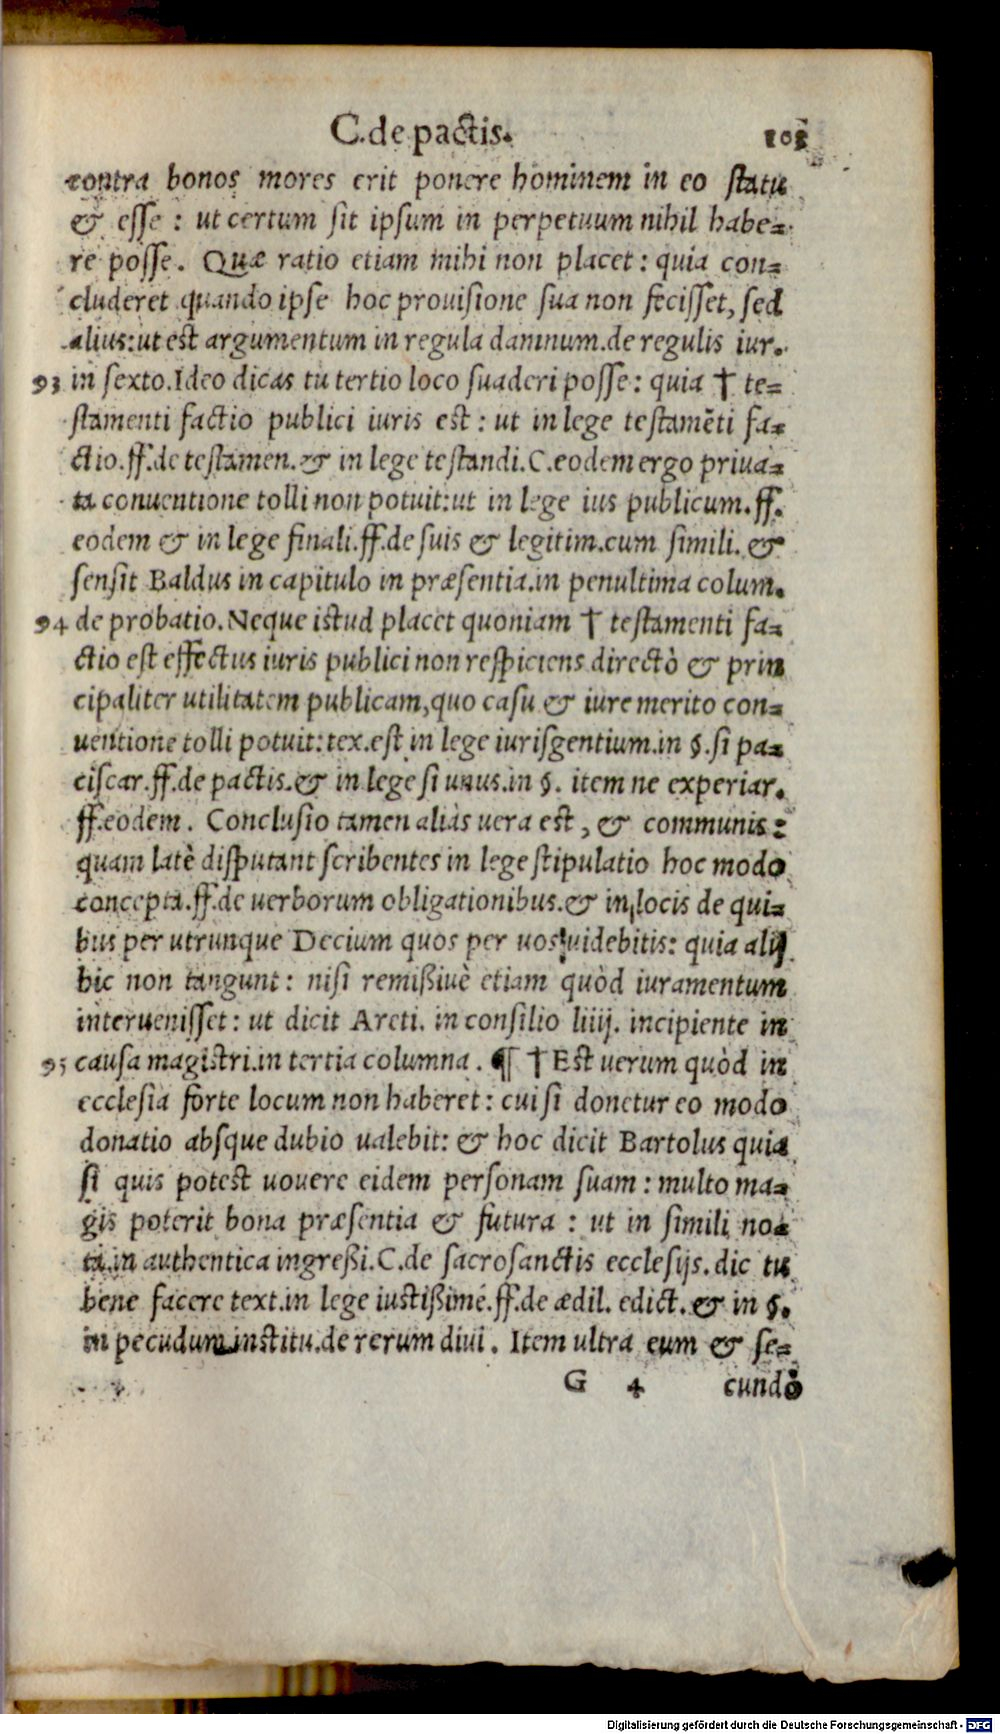 C. de pactis. 103
contra bonos mores erit ponere hominem in eo statu
& esse : ut certum sit ipsum in perpetuum nihil habe-
re posse. Quæ ratio etiam mihi non placet : quia con-
cluderet quando ipse hoc prouisione sua non fecisset, sed
alius: ut est argumentum in regula damnum. de regulis iur.
93 in sexto. Ideo dicas tu tertio loco suaderi posse: quia † te-
stamenti factio publici iuris est : ut in lege testamēti fa-
ctio. ff. de testamen. & in lege testandi. C. eodem ergo priua-
ta conuentione tolli non potuit: ut in lege ius publicum. ff.
eodem & in lege finali. ff. de suis & legitim. cum simili. &
sensit Baldus in capitulo in præsentia. in penultima colum.
94 de probatio. Neque istud placet quoniam † testamenti fa-
ctio est effectus iuris publici non respiciens directò & prin
cipaliter utilitatem publicam, quo casu & iure merito con-
uentione tolli potuit: tex. est in lege iurisgentium. in §. si pa-
ciscar. ff. de pactis. & in lege si unus. in §. item ne experiar.
ff. eodem. Conclusio tamen aliàs uera est, & communis:
quam latè disputant scribentes in lege stipulatio hoc modo
concepta. ff. de uerborum obligationibus. & in locis de qui-
bus per utrunque Decium quos per uos uidebitis: quia alij
hic non tangunt : nisi remißiuè etiam quòd iuramentum
interuenisset: ut dicit Areti. in consilio liiij. incipiente in
95 causa magistri. in tertia columna. ¶ † Est uerum quòd in
ecclesia forte locum non haberet: cui si donetur eo modo
donatio absque dubio ualebit: & hoc dicit Bartolus quia
si quis potest uouere eidem personam suam : multo ma-
gis poterit bona præsentia & futura : ut in simili no-
ta. in authentica ingreßi. C. de sacrosanctis ecclesijs. dic tu
bene facere text. in lege iustißimé. ff. de ædil. edict. & in §.
in pecudum institu. de rerum diui. Item ultra eum & se-
G 4 cundò
Digitalisierung gefördert durch die Deutsche Forschungsgemeinschaft - DFG